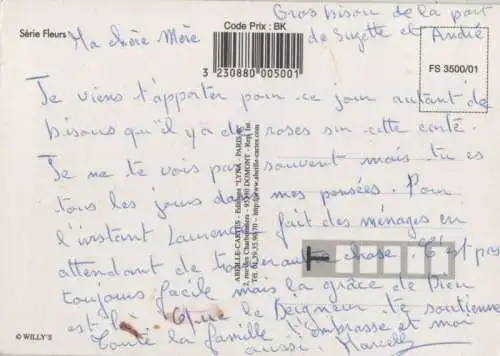 Série Fleurs
Code Prix : BK
Gros bisou de la part
de Suzette et André
Ma chère Mère
3 230880 005001
FS 3500/01
Je viens t'apporter pour ce jour autant de
bisous qu'il y a de roses sur cette carte.
Je ne te vois pas souvent mais tu es
tous les jours dans mes pensées. Pour
l'instant Laurence fait des ménages en
attendant de trouver autre chose. C'est pas
toujours facile mais la grâce de Dieu
est là. Que le Seigneur te soutienne
Toute la famille t'embrasse et moi
aussi. Marcelle
ABEILLE-CARTES - Editions "LYNA - PARIS"
2, rue des Charbonniers - 95330 DOMONT - Rep. Int.
http://www.abeille-cartes.com
© WILLY'S